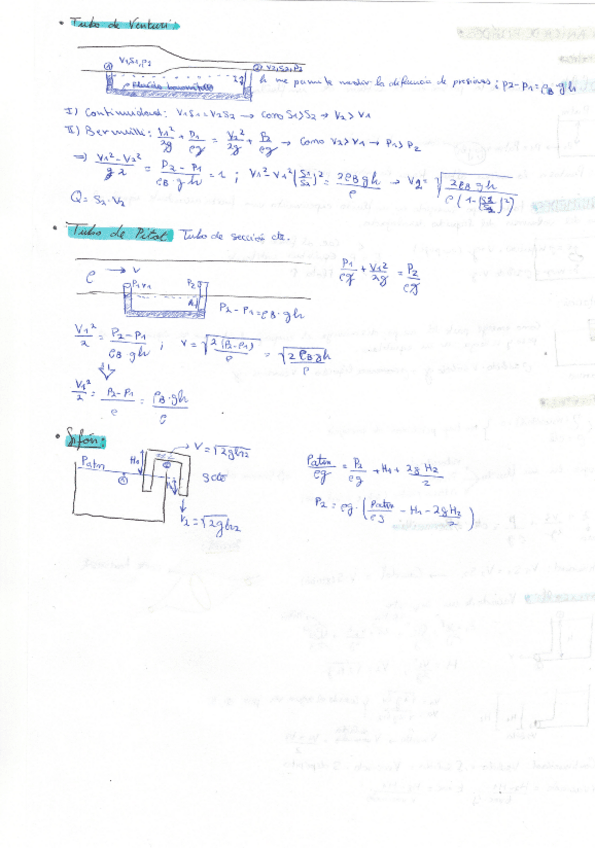 • Tubo de Venturi:
① V1,S1,P1 ② V2,S2,P2
fluido barométrico
h me permite medir la diferencia de presiones; P2-P1=ρB·gh
I) Continuidad: V1S1=V2S2 → Como S1>S2 → V2>V1
II) Bernuilli: V1²/2g + P1/ρg = V2²/2g + P2/ρg → Como V2>V1 → P1>P2
V1²-V1²(S1/S2)² = 2ρBgh/ρ → V2= √(2ρBgh/ρ(1-(S2/S1)²))
Q= S2·V2
• Tubo de Pitot. Tubo de sección cte.
ρ → V P1V1 P2 P1/ρg + V1²/2g = P2/ρg
P2-P1=ρB·gh
V1²/2 = P2-P1/ρB·gh ; V=√(2(P2-P1)/ρ) = √(2ρBgh/ρ)
V1²/2 = P2-P1/ρ = ρB·gh/ρ
• Sifón:
Patm H1 V=√2gH2
Patm/ρg = P2/ρg + H1 + 2gH2/2
V2=√2gH2
P2 = ρg·(Patm/ρg - H1 - 2gH2/2)